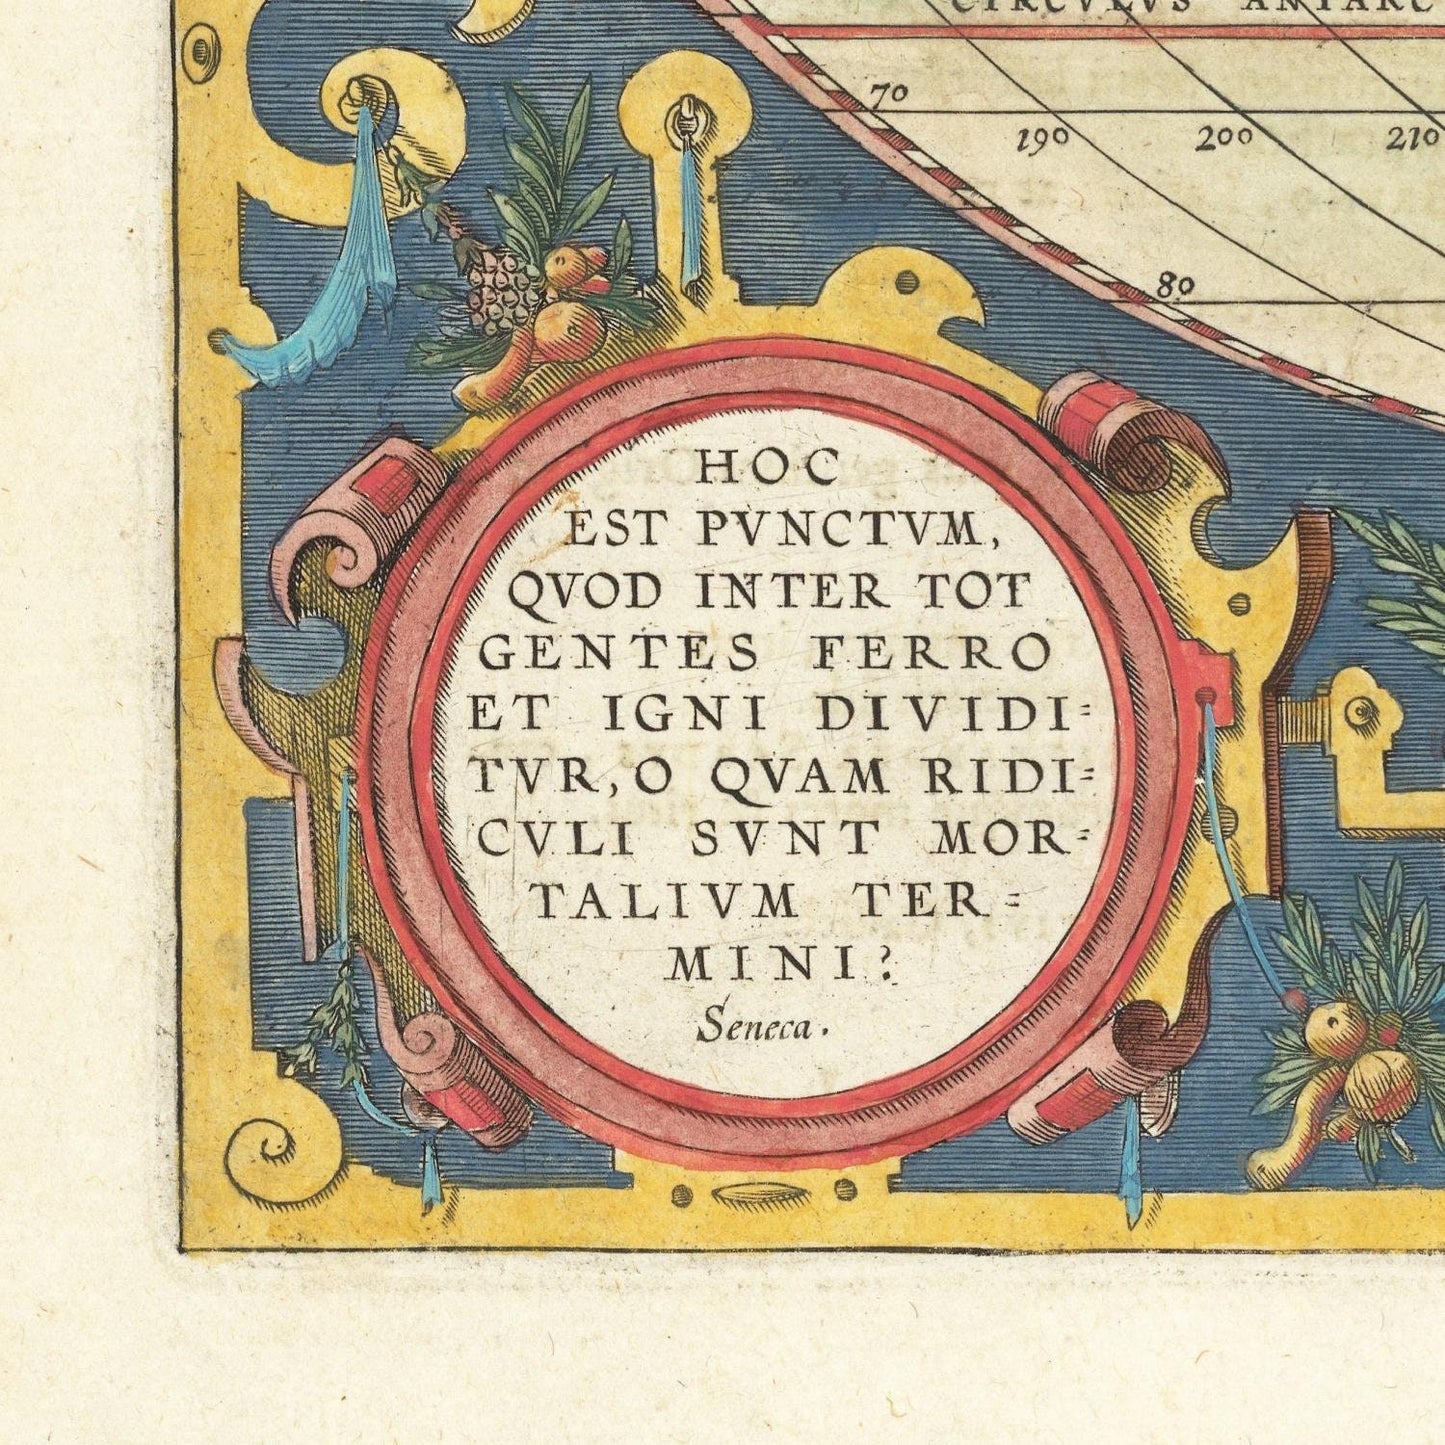 CIRCVLVS ANTARC
70
190 200 210
80
HOC
EST PVNCTVM,
QVOD INTER TOT
GENTES FERRO
ET IGNI DIVIDI=
TVR, O QVAM RIDI=
CVLI SVNT MOR=
TALIVM TER=
MINI?
Seneca.